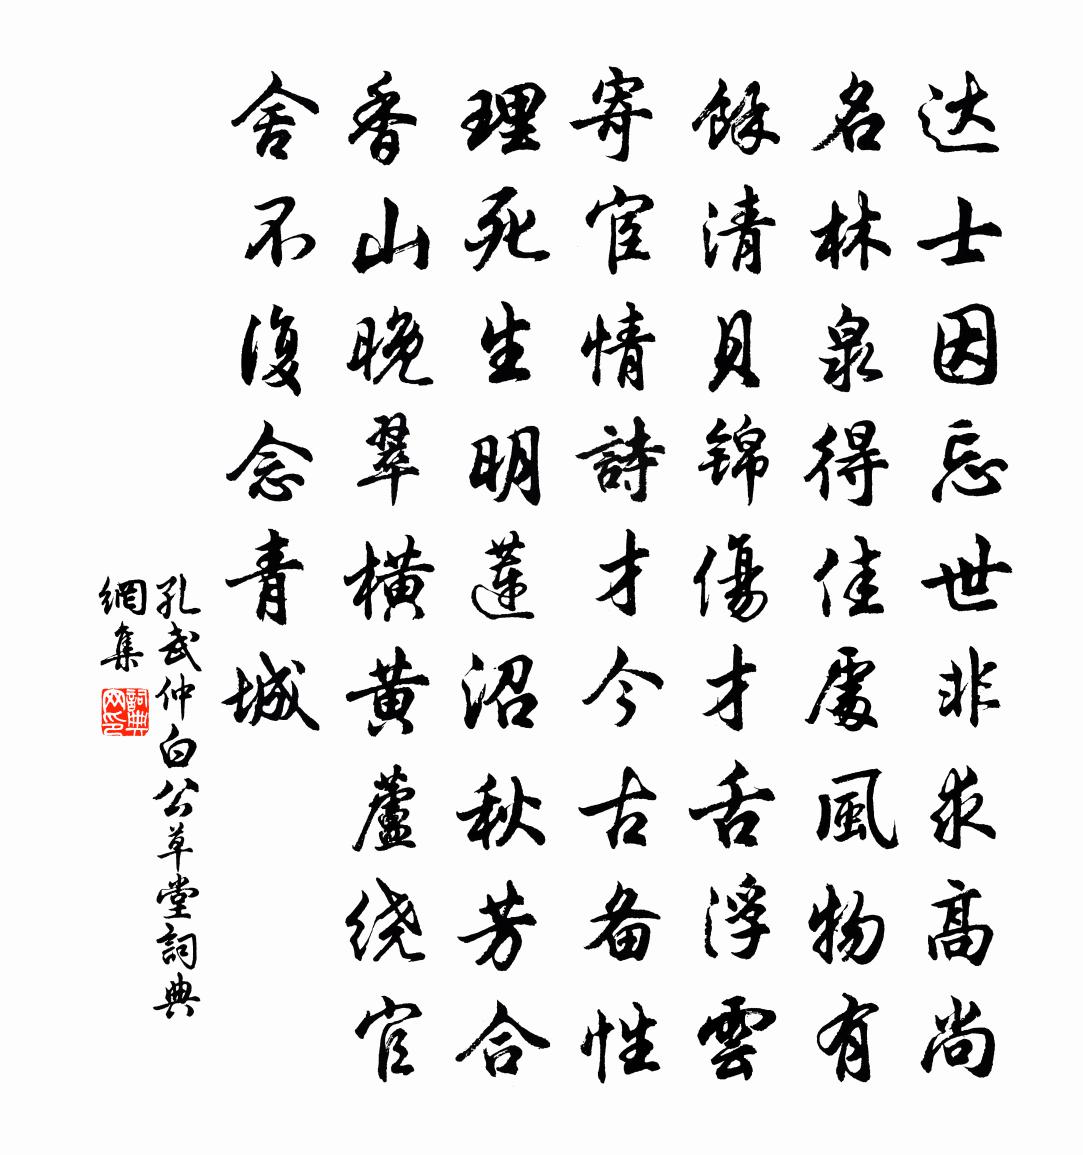 达士因忘世非求高尚
名林泉得佳處風物有
餘清貝锦傷才舌浮雲
寄宦情詩才今古备性
理死生明蓮沼秋芳合
香山晚翠横黄蘆绕官
舍不復念青城
孔武仲白公草堂詞典
網集
詞典網印